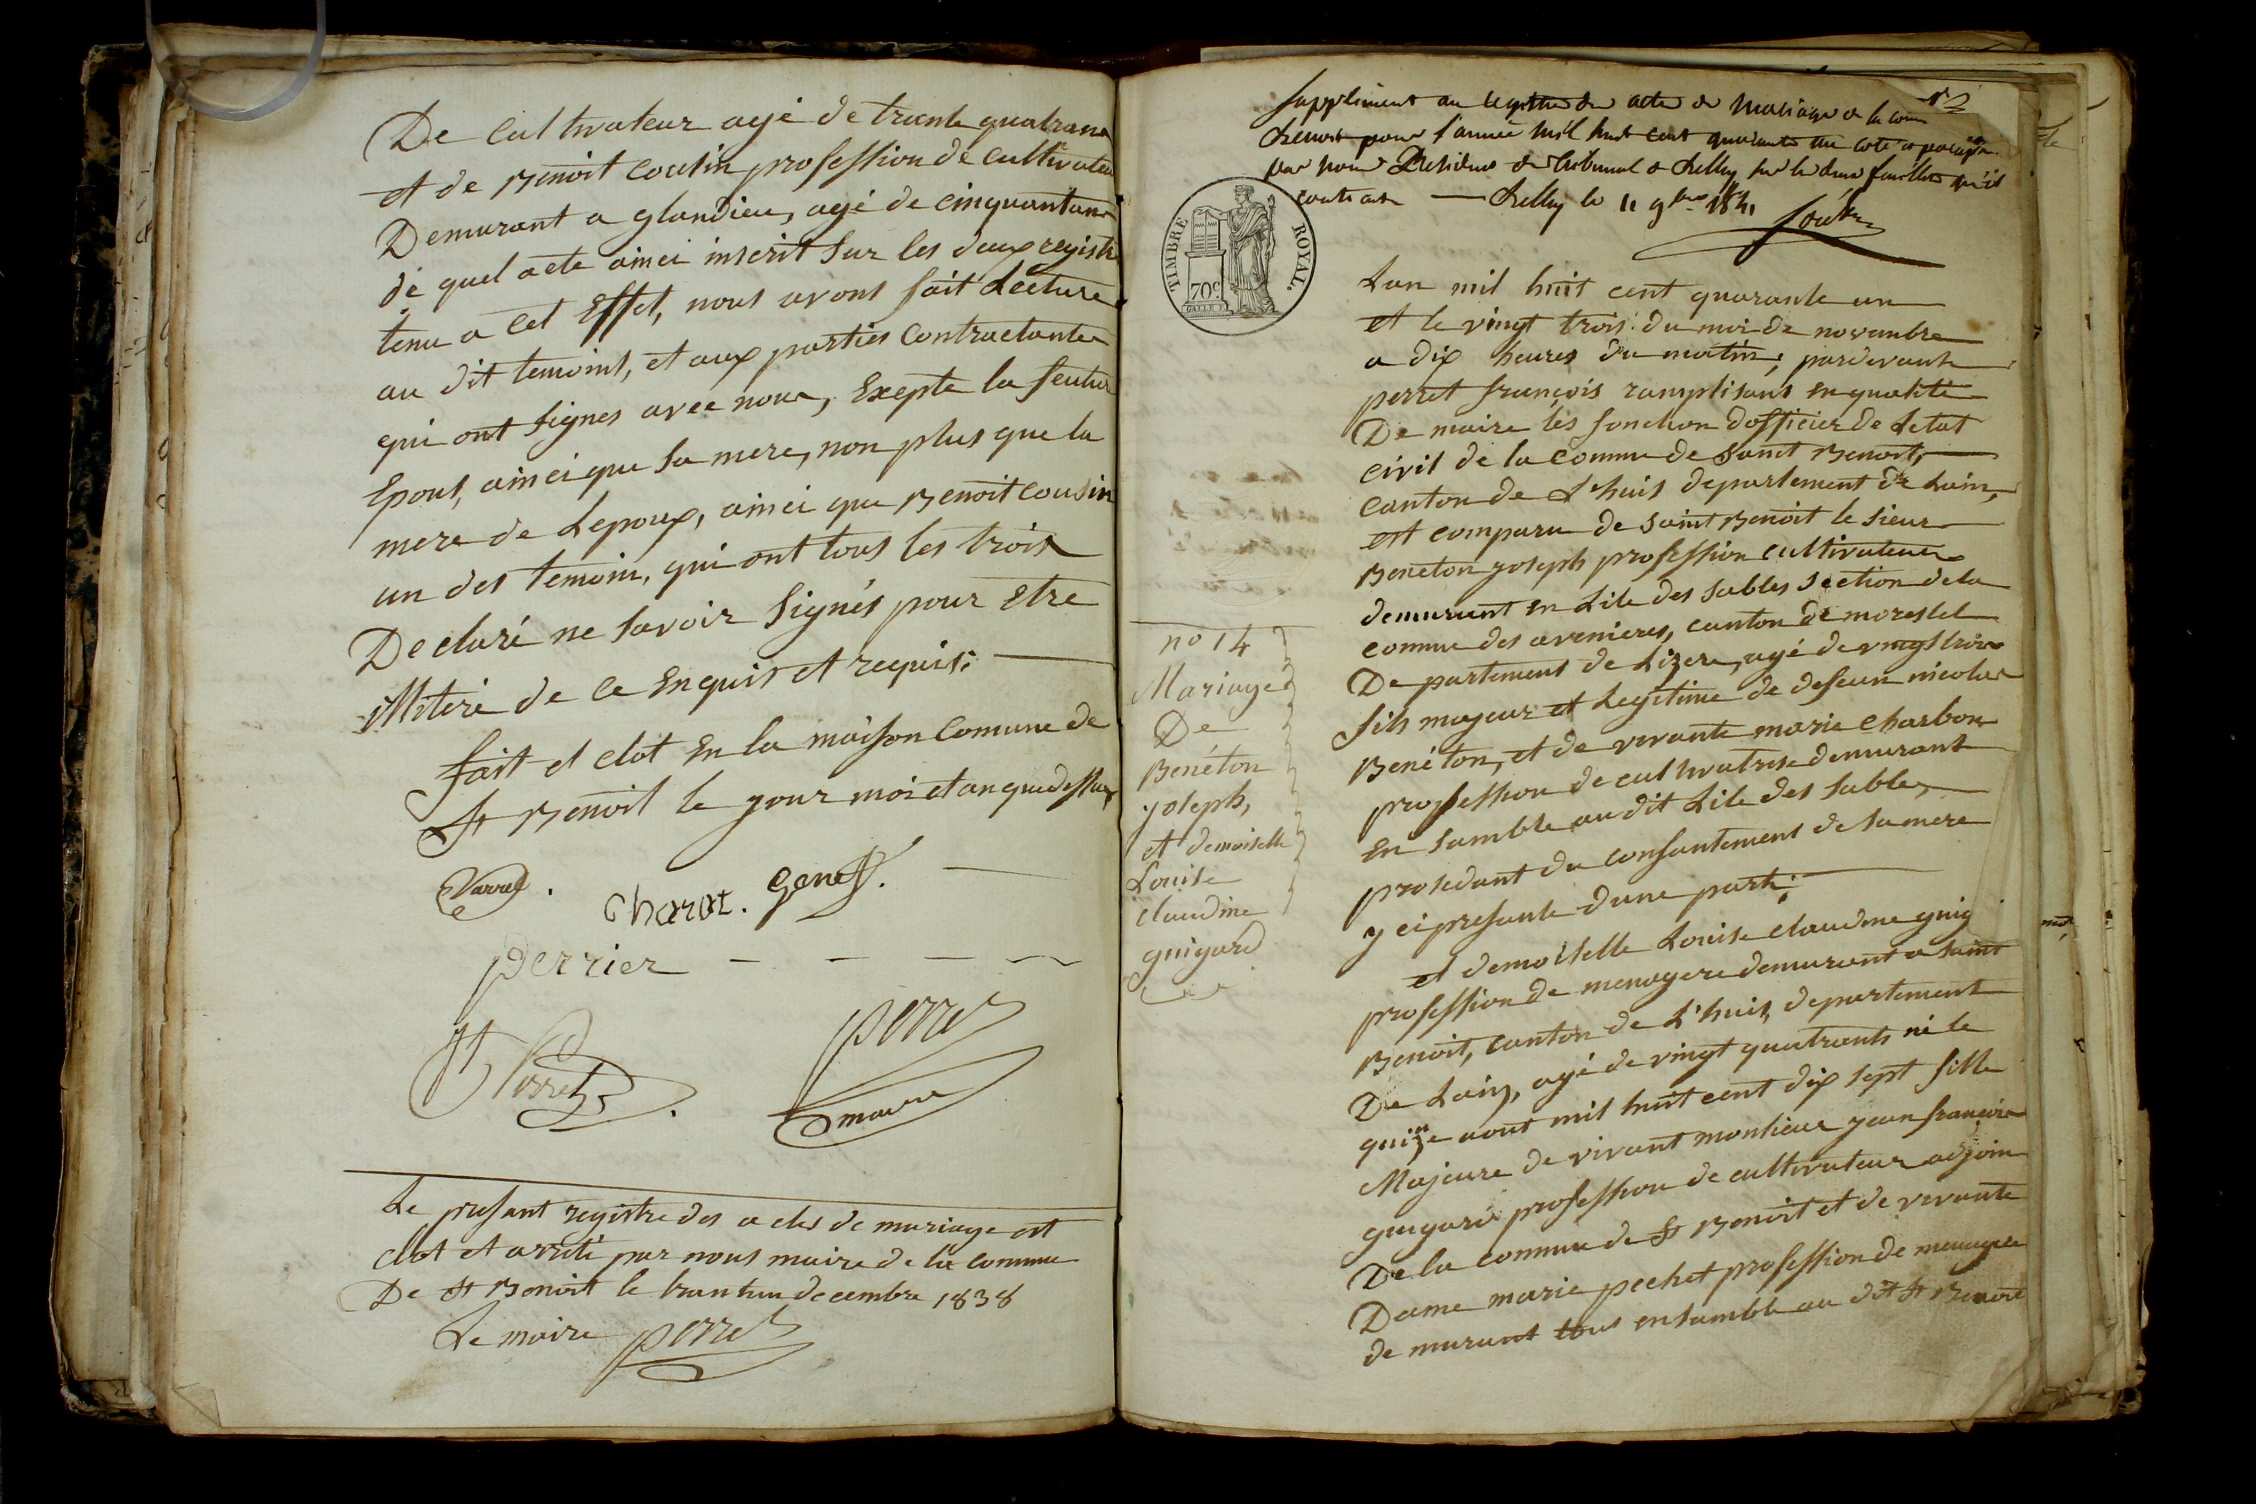 De cultivateur agé de trante quatrans
et de Benoit Cousin profession de cultivateur
Demurant a glandieu, agé de cinquantans
de quel acte ainci inscrit sur les deux registre
tenu a cet Effet, nous avons fait Lecture
au dit temoins, et aux parties contractantes
qui ont signes avec nous, Exepte la feutur
Epous, ainci que sa mere, non plus que la
mere de Lepoux, ainci que Benoit cousin
un des temoin, qui ont tous les trois
Declaré ne savoir signés pour Etre
illiteré de ce Enquis et requis;
fait et clôt En la maison Comune de
St Benoit le your mois et an que dessus
Varret.
Charat. Genet.
perrier
Perret
perret
maire
Le presant registre des actes de mariage est
clot et arreté par nous maire de la commune
De St Benoit le trantun decembre 1838
Le maire perret
Supplément au registre des actes de mariage de la comm
Benoit pour l'année mil huit cent quarante un coté et paraphé
par nous President du tribunal de Belley sur les deux feuillets qu'il
contient Belley le 11 9bre 1841
TIMBRE ROYAL.
70c
Lan mil huit cent quarante un
et le vingt trois du moi de novanbre
a dix heures du matin, pardevant
perret françois ramplisant En qualité
De maire les fonction dofficier de Letat
civil de la commune de Sanct Benoit,
canton de L'huis departement de Lain,
est comparu de Saint Benoit le sieur
Beneton yoseph profession cultivateur
demurant En Lile des Sables section de la
commune des avenieres, canton de morestel
Departement de Lizere, agé de vingt trois
fils majeur et Legitime de defeun nicolas
Benéton, et de vivante marie Charbon
profession de cultivatrise demurant
En samble au dit Lile des Sables,
prosedant du consantement de sa mere
y ci presante dune part;
et demoiselle Louise claudine guig
profession de menagere demurant a Saint
Benoit, canton de L'huis, departement
De Lain, agé de vingt quatrants né le
quinze aout mil huit cent dix sept fille
Majeure de vivant monsieur yean françois
guigard profession de cultivateur adjoin
De la commune de St Benoit et de vivante
Dame marie pechet profession de menagere
de murant tous ensamble au dit St Benoit
no 14
Mariage
De
Benéton
yoseph,
et demoiselle
Louise
claudine
guigard